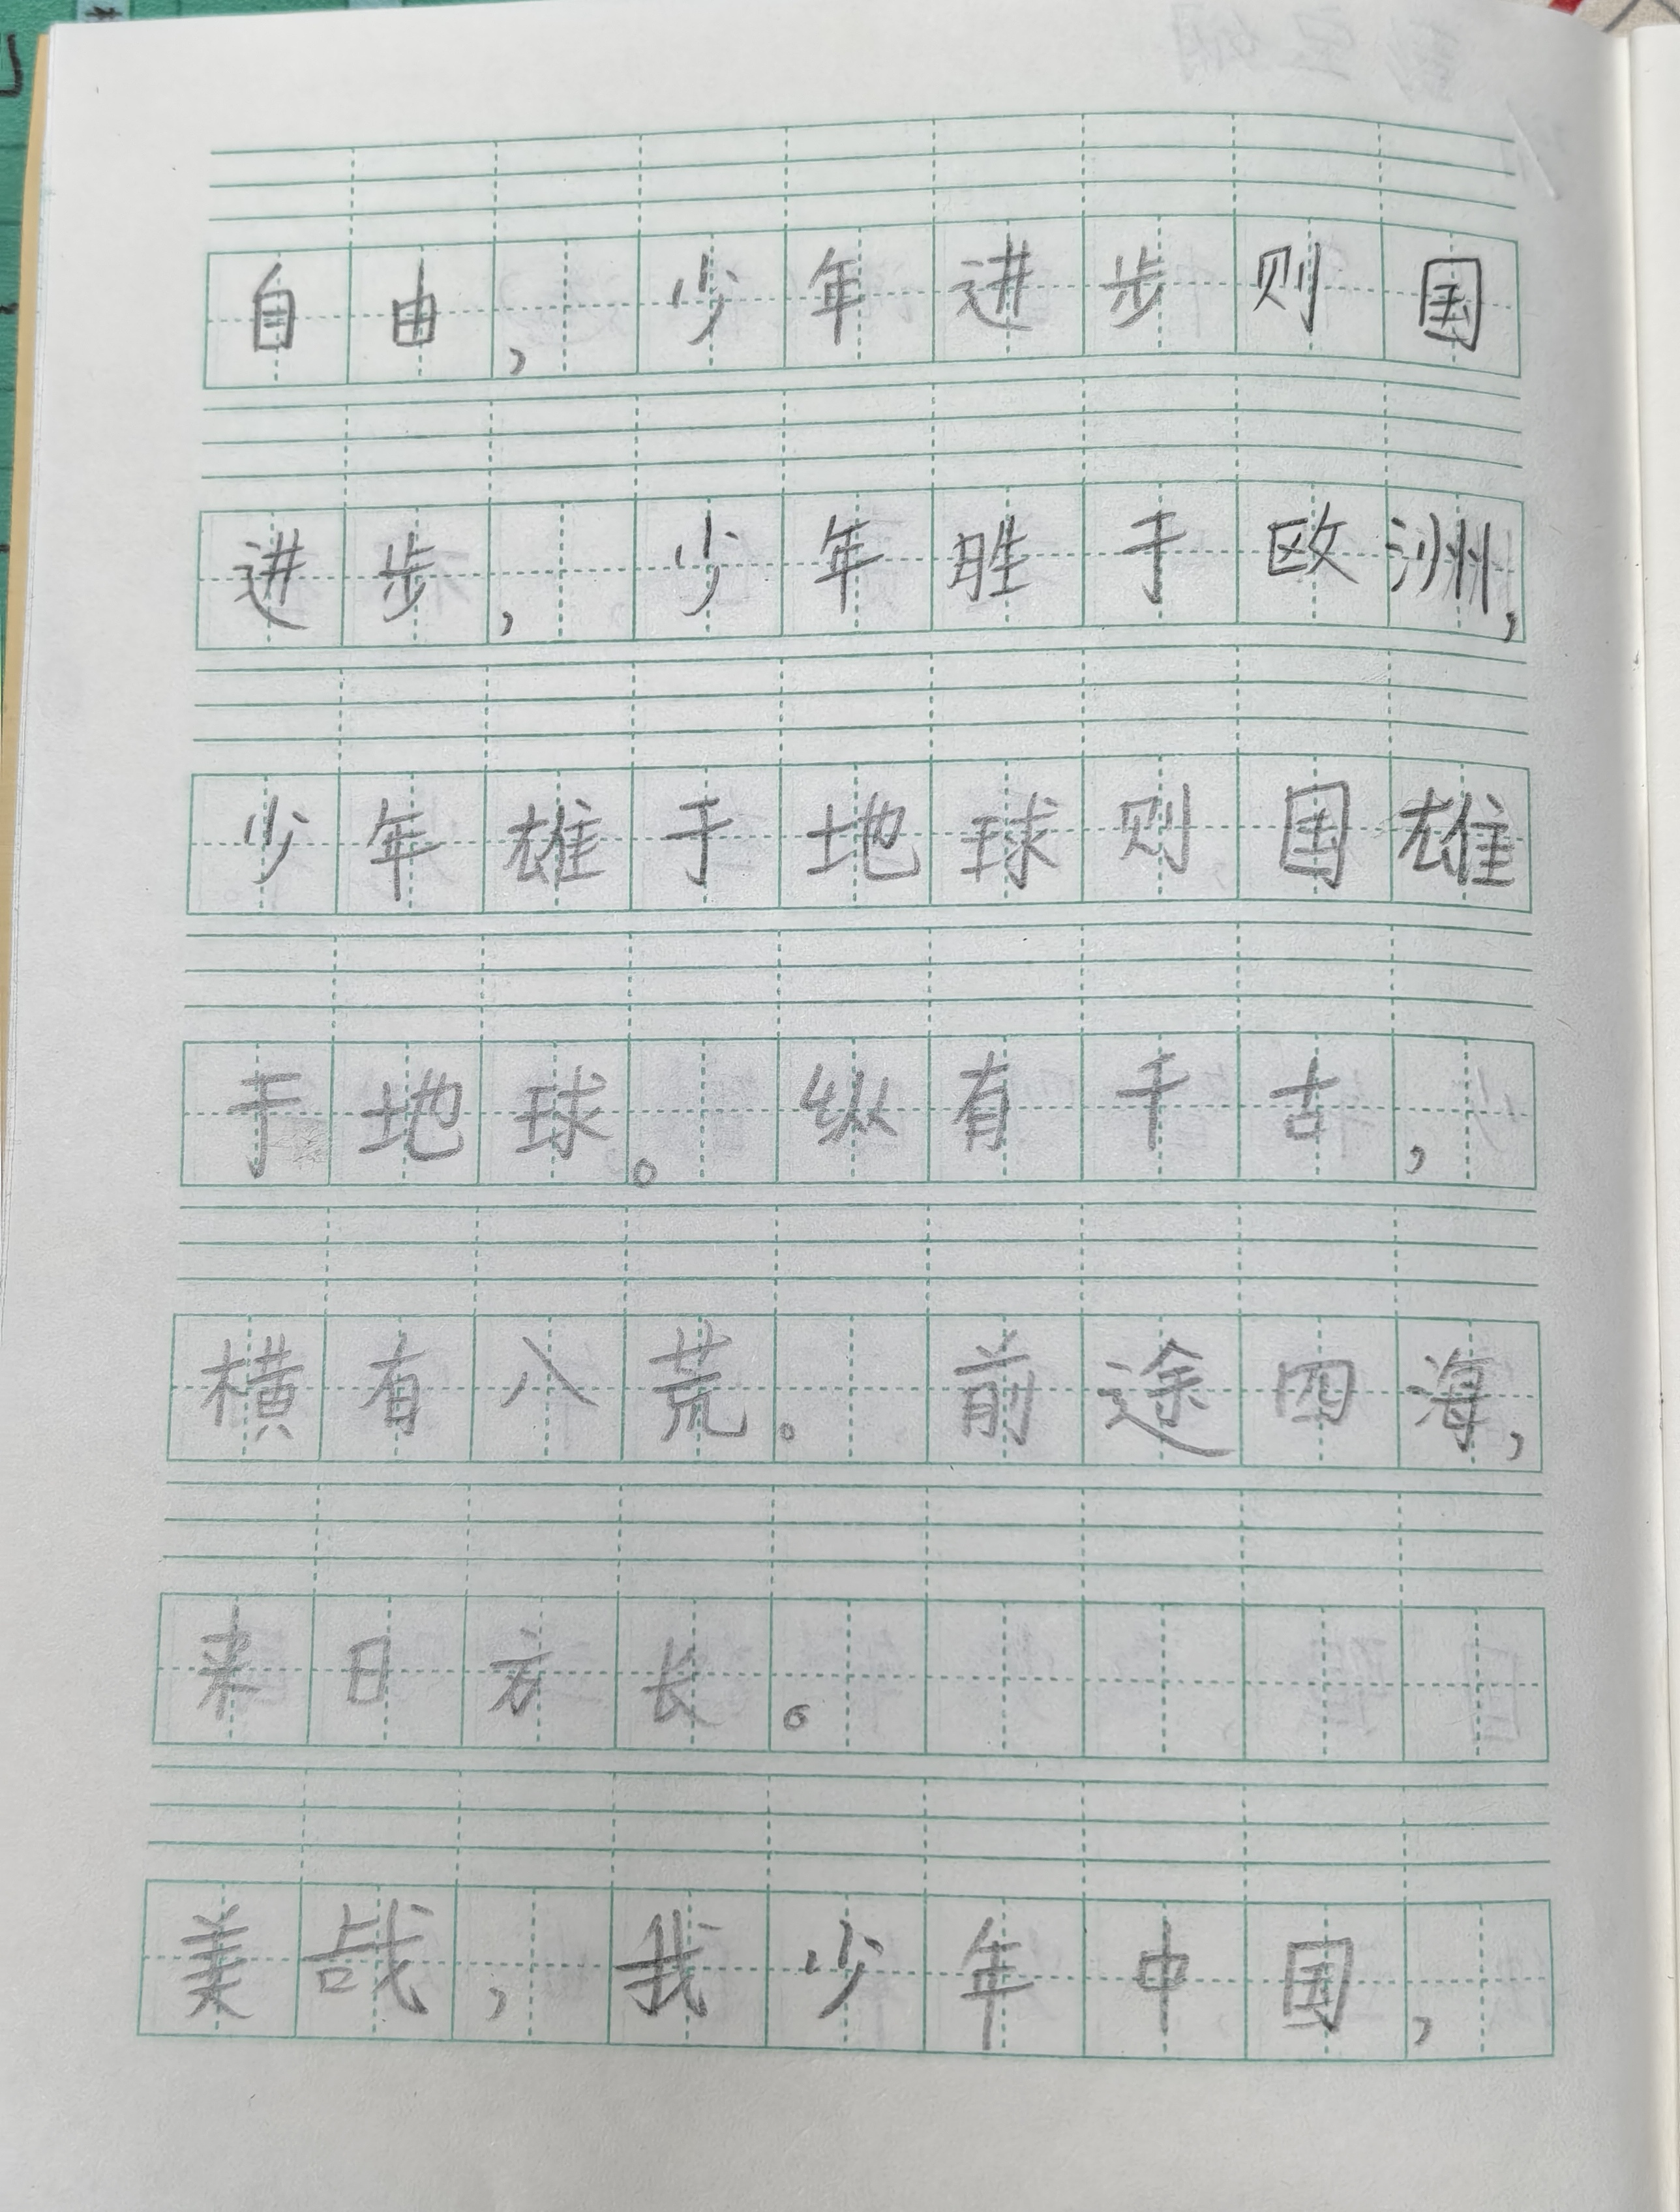 自由，少年进步则国
进步，少年胜于欧洲，
少年雄于地球则国雄
于地球。纵有千古，
横有八荒。前途四海，
来日方长。
美哉，我少年中国，